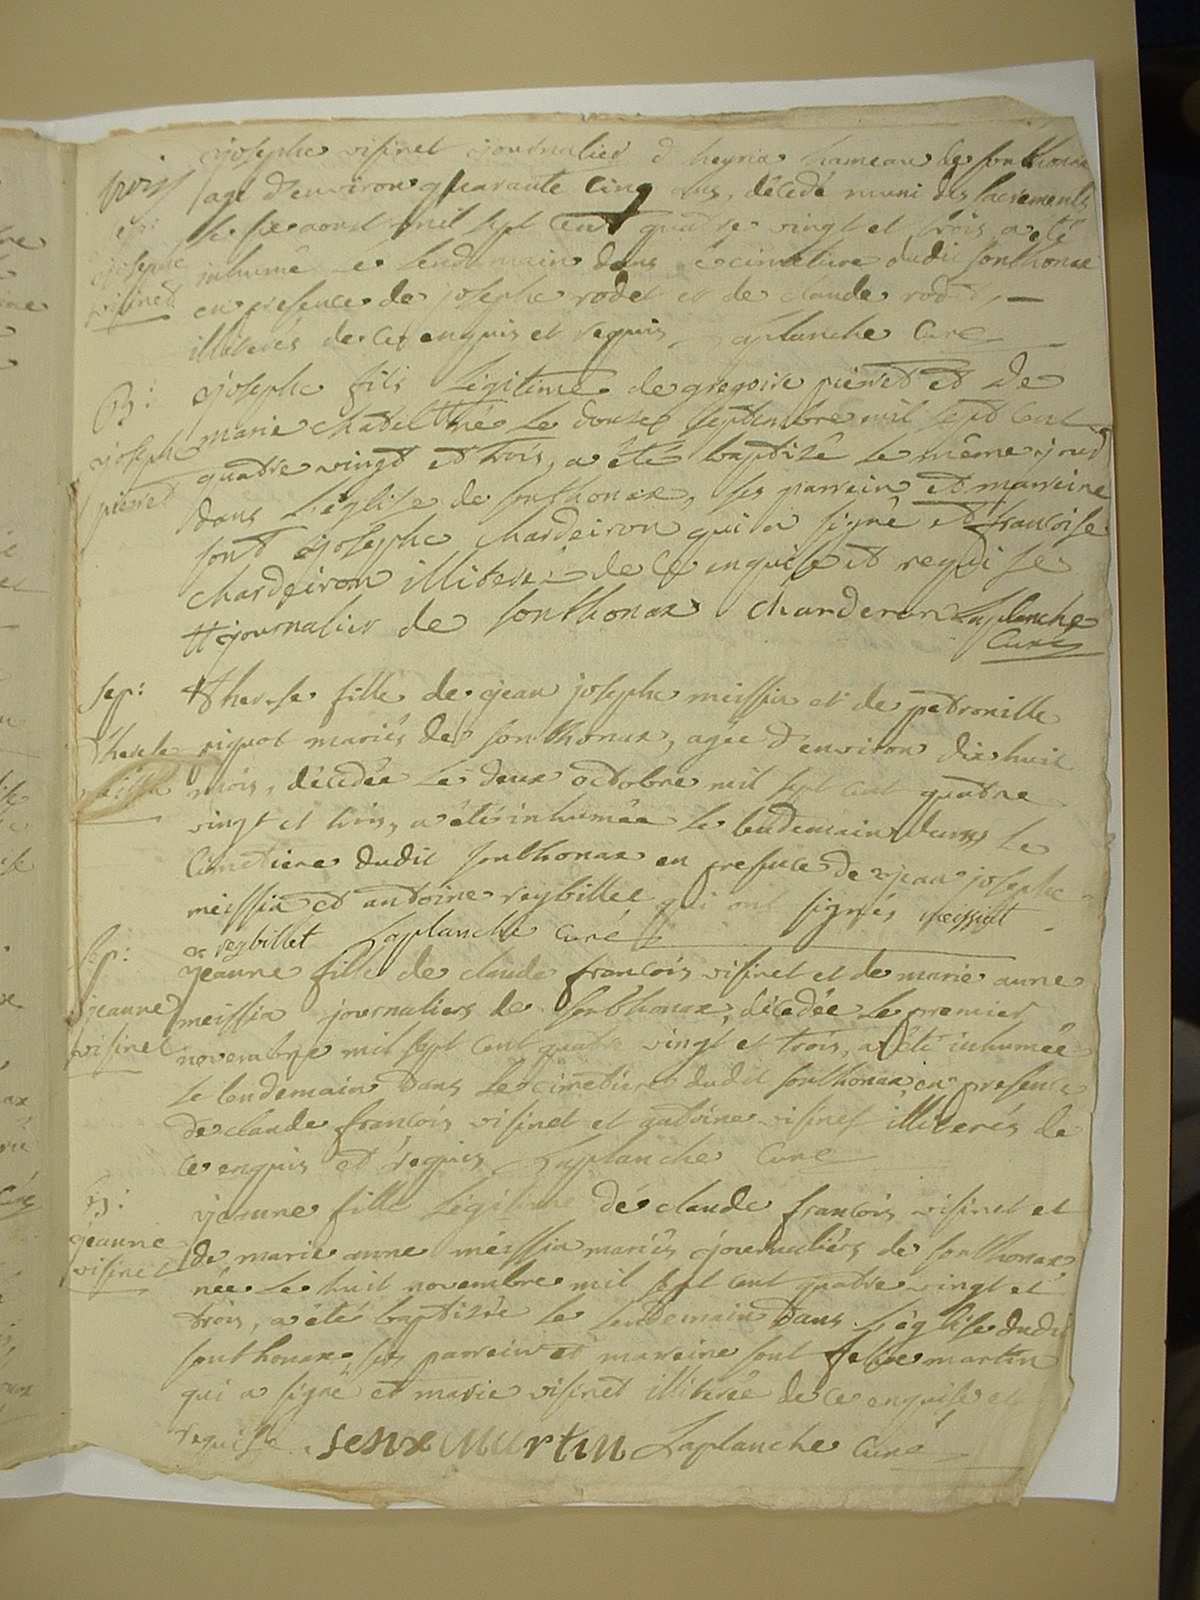 josephe visinet journalier d heyria hameau de sonthonax
agé d'environ quarante cinq ans, décédé muni des sacrements
aoust mil sept cent quatre vingt et trois a été
inhumé le lendemain dans le cimetiere dudit sonthonax
en presence de josephe rodet et de claude rodet,
illiterés de ce enquis et requis Laplanche Curé
joseph
visinet
B:
josephe
pierret
josephe fils légitime de gregoire pierret et de
marie chatel né le douze septembre mil sept cent
quatre vingt et trois, a été baptisé le même jour
dans l'église de sonthonax, ses parrein et marreine
sont josephe chardeiron qui a signé et francoise
chardeiron illiterée de ce enquise et requise
journalier de sonthonax charderon Laplanche
Curé
sep:
therese
missia
therese fille de jean josephe meissia et de petronille
piquet mariés de sonthonax, agée d'environ dix huit
mois, décédée le deux octobre mil sept cent quatre
vingt et trois, a été inhumée le lendemain dans le
cimetiere dudit sonthonax en presence de jean josephe
meissia et antoine reybillet qui ont signés meissiat
reybillet Laplanche Curé
sep:
jeanne
visinet
jeanne fille de claude francois visinet et de marie anne
meissia journaliers de sonthonax, décédée le premier
novembre mil sept cent quatre vingt et trois, a été inhumée
le lendemain dans le cimetiere dudit sonthonax en presence
de claude francois visinet et antoine visinet illiterés de
ce enquis et requis Laplanche Curé
B:
jeanne
visinet
jeanne fille légitime de claude francois visinet et
de marie anne meissia mariés journaliers de sonthonax
née le huit novembre mil sept cent quatre vingt et
trois, a été baptisée le lendemain dans l'église dudit
sonthonax, ses parrein et marreine sont felix martin
qui a signé et marie visinet illiterée de ce enquise et
requise. felix martin Laplanche Curé